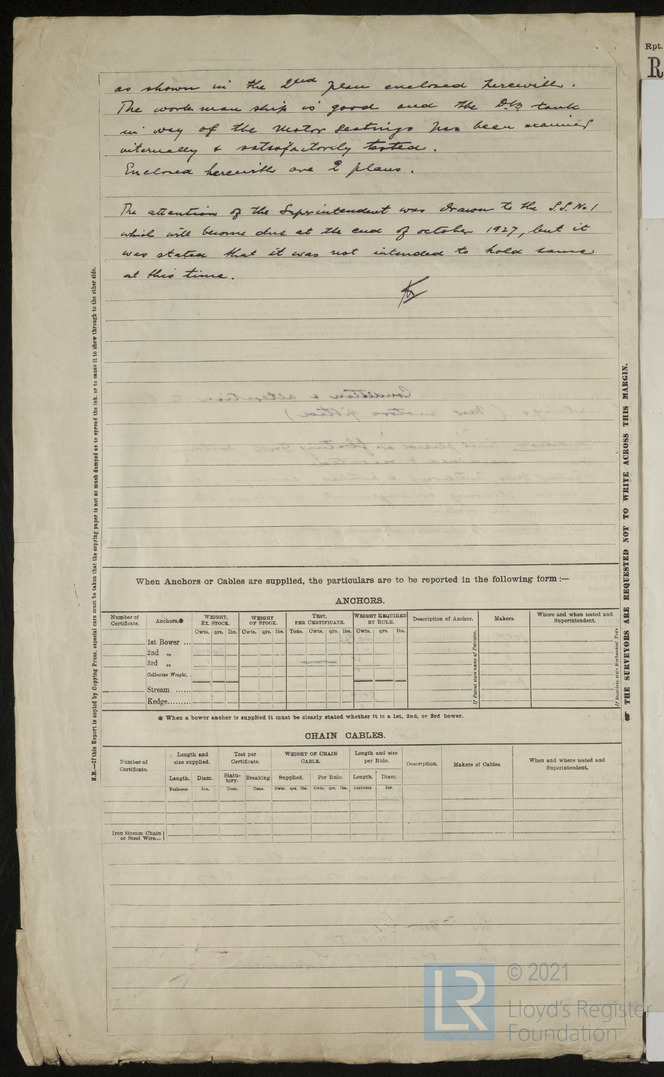 as shown in the 2nd plan enclosed herewith.
The workmanship is good and the D.B. tank
in way of the motor seatings has been examined
internally & satisfactorily tested.
Enclosed herewith are 2 plans.
The attention of the Superintendent was drawn to the S.S. No 1
which will become due at the end of october 1927, but it
was stated that it was not intended to hold same
at this time.
Rpt.
R
N.B.—If this Report is copied by Copying Press, especial care must be taken that the copying paper is not so much damped as to spread the ink, or to cause it to show through to the other side.
☞ THE SURVEYORS ARE REQUESTED NOT TO WRITE ACROSS THIS MARGIN.
When Anchors or Cables are supplied, the particulars are to be reported in the following form :—
ANCHORS.
Number of Certificate. Anchors.* WEIGHT, EX. STOCK. WEIGHT OF STOCK. TEST, PER CERTIFICATE. WEIGHT REQUIRED BY RULE. Description of Anchor. Makers. Where and when tested and Superintendent.
Cwts. qrs. lbs. Cwts. qrs. lbs. Tons. Cwts. qrs. lbs. Cwts. qrs. lbs.
1st Bower ...
2nd „
3rd „
Collective Weight.
Stream ......
Kedge........
If Patent state name of Patentee.
* When a bower anchor is supplied it must be clearly stated whether it is a 1st, 2nd, or 3rd bower.
CHAIN CABLES.
Number of Certificate. Length and size supplied. Test per Certificate. WEIGHT OF CHAIN CABLE. Length and size per Rule. Description. Makers of Cables. When and where tested and Superintendent.
Length. Diam. Statutory. Breaking Supplied. Per Rule. Length. Diam.
Fathoms. Ins. Tons. Tons. Cwts. qrs. lbs. Cwts. qrs. lbs. Fathoms Ins.
Iron Stream Chain or Steel Wire...
LR
© 2021
Lloyd's Register
Foundation